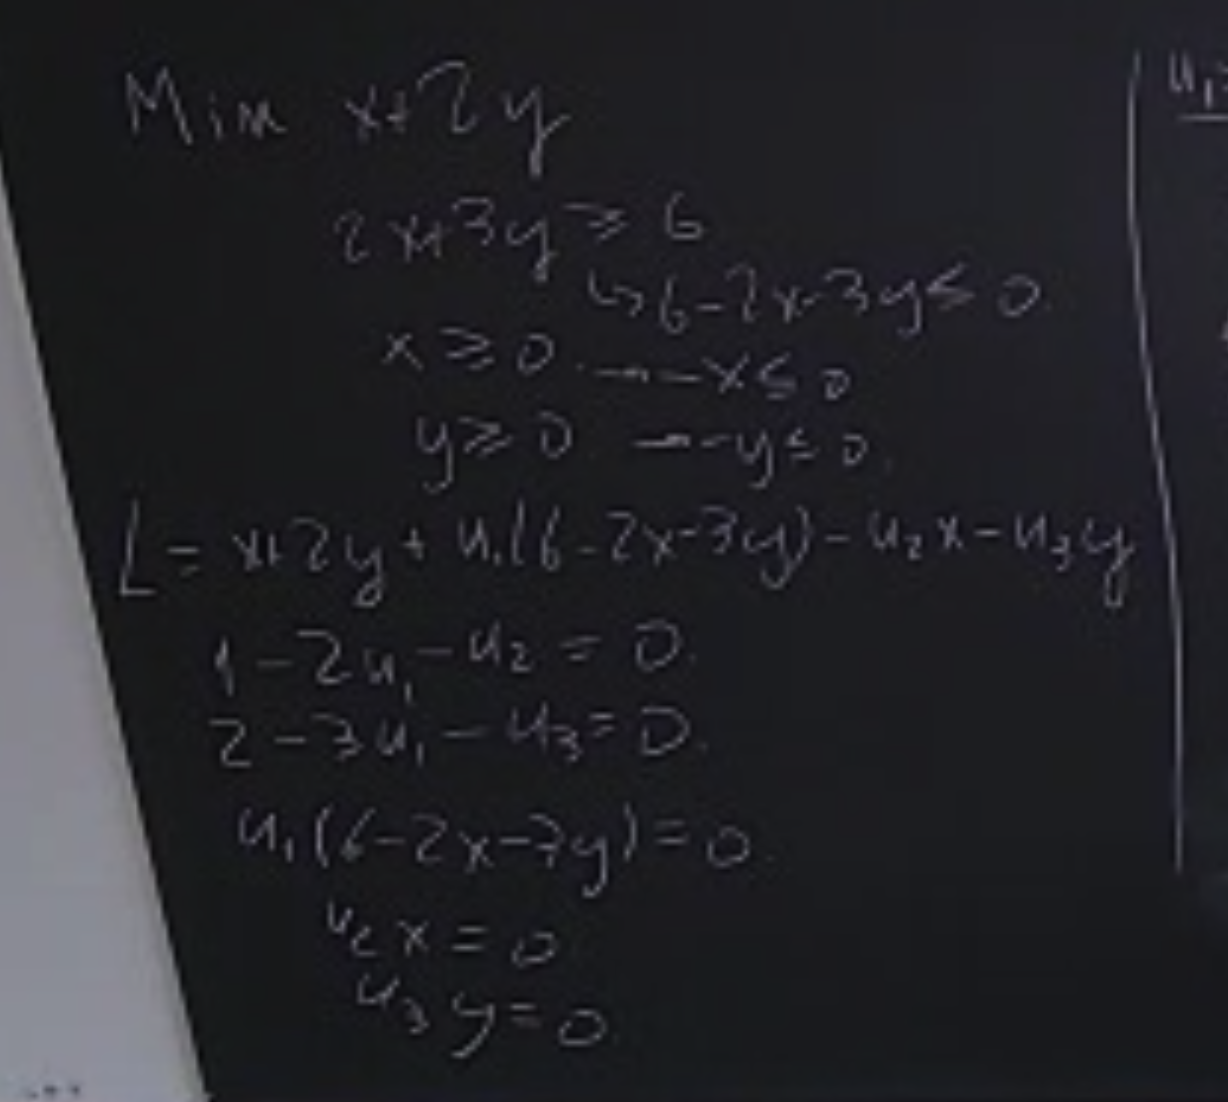 Min x+2y
2x+3y ≥ 6
↳ 6-2x-3y ≤ 0
x ≥ 0 → -x ≤ 0
y ≥ 0 → -y ≤ 0.
L = x+2y + u₁(6-2x-3y) - u₂x - u₃y
1 - 2u₁ - u₂ = 0.
2 - 3u₁ - u₃ = 0.
u₁(6-2x-3y) = 0.
u₂x = 0
u₃y = 0